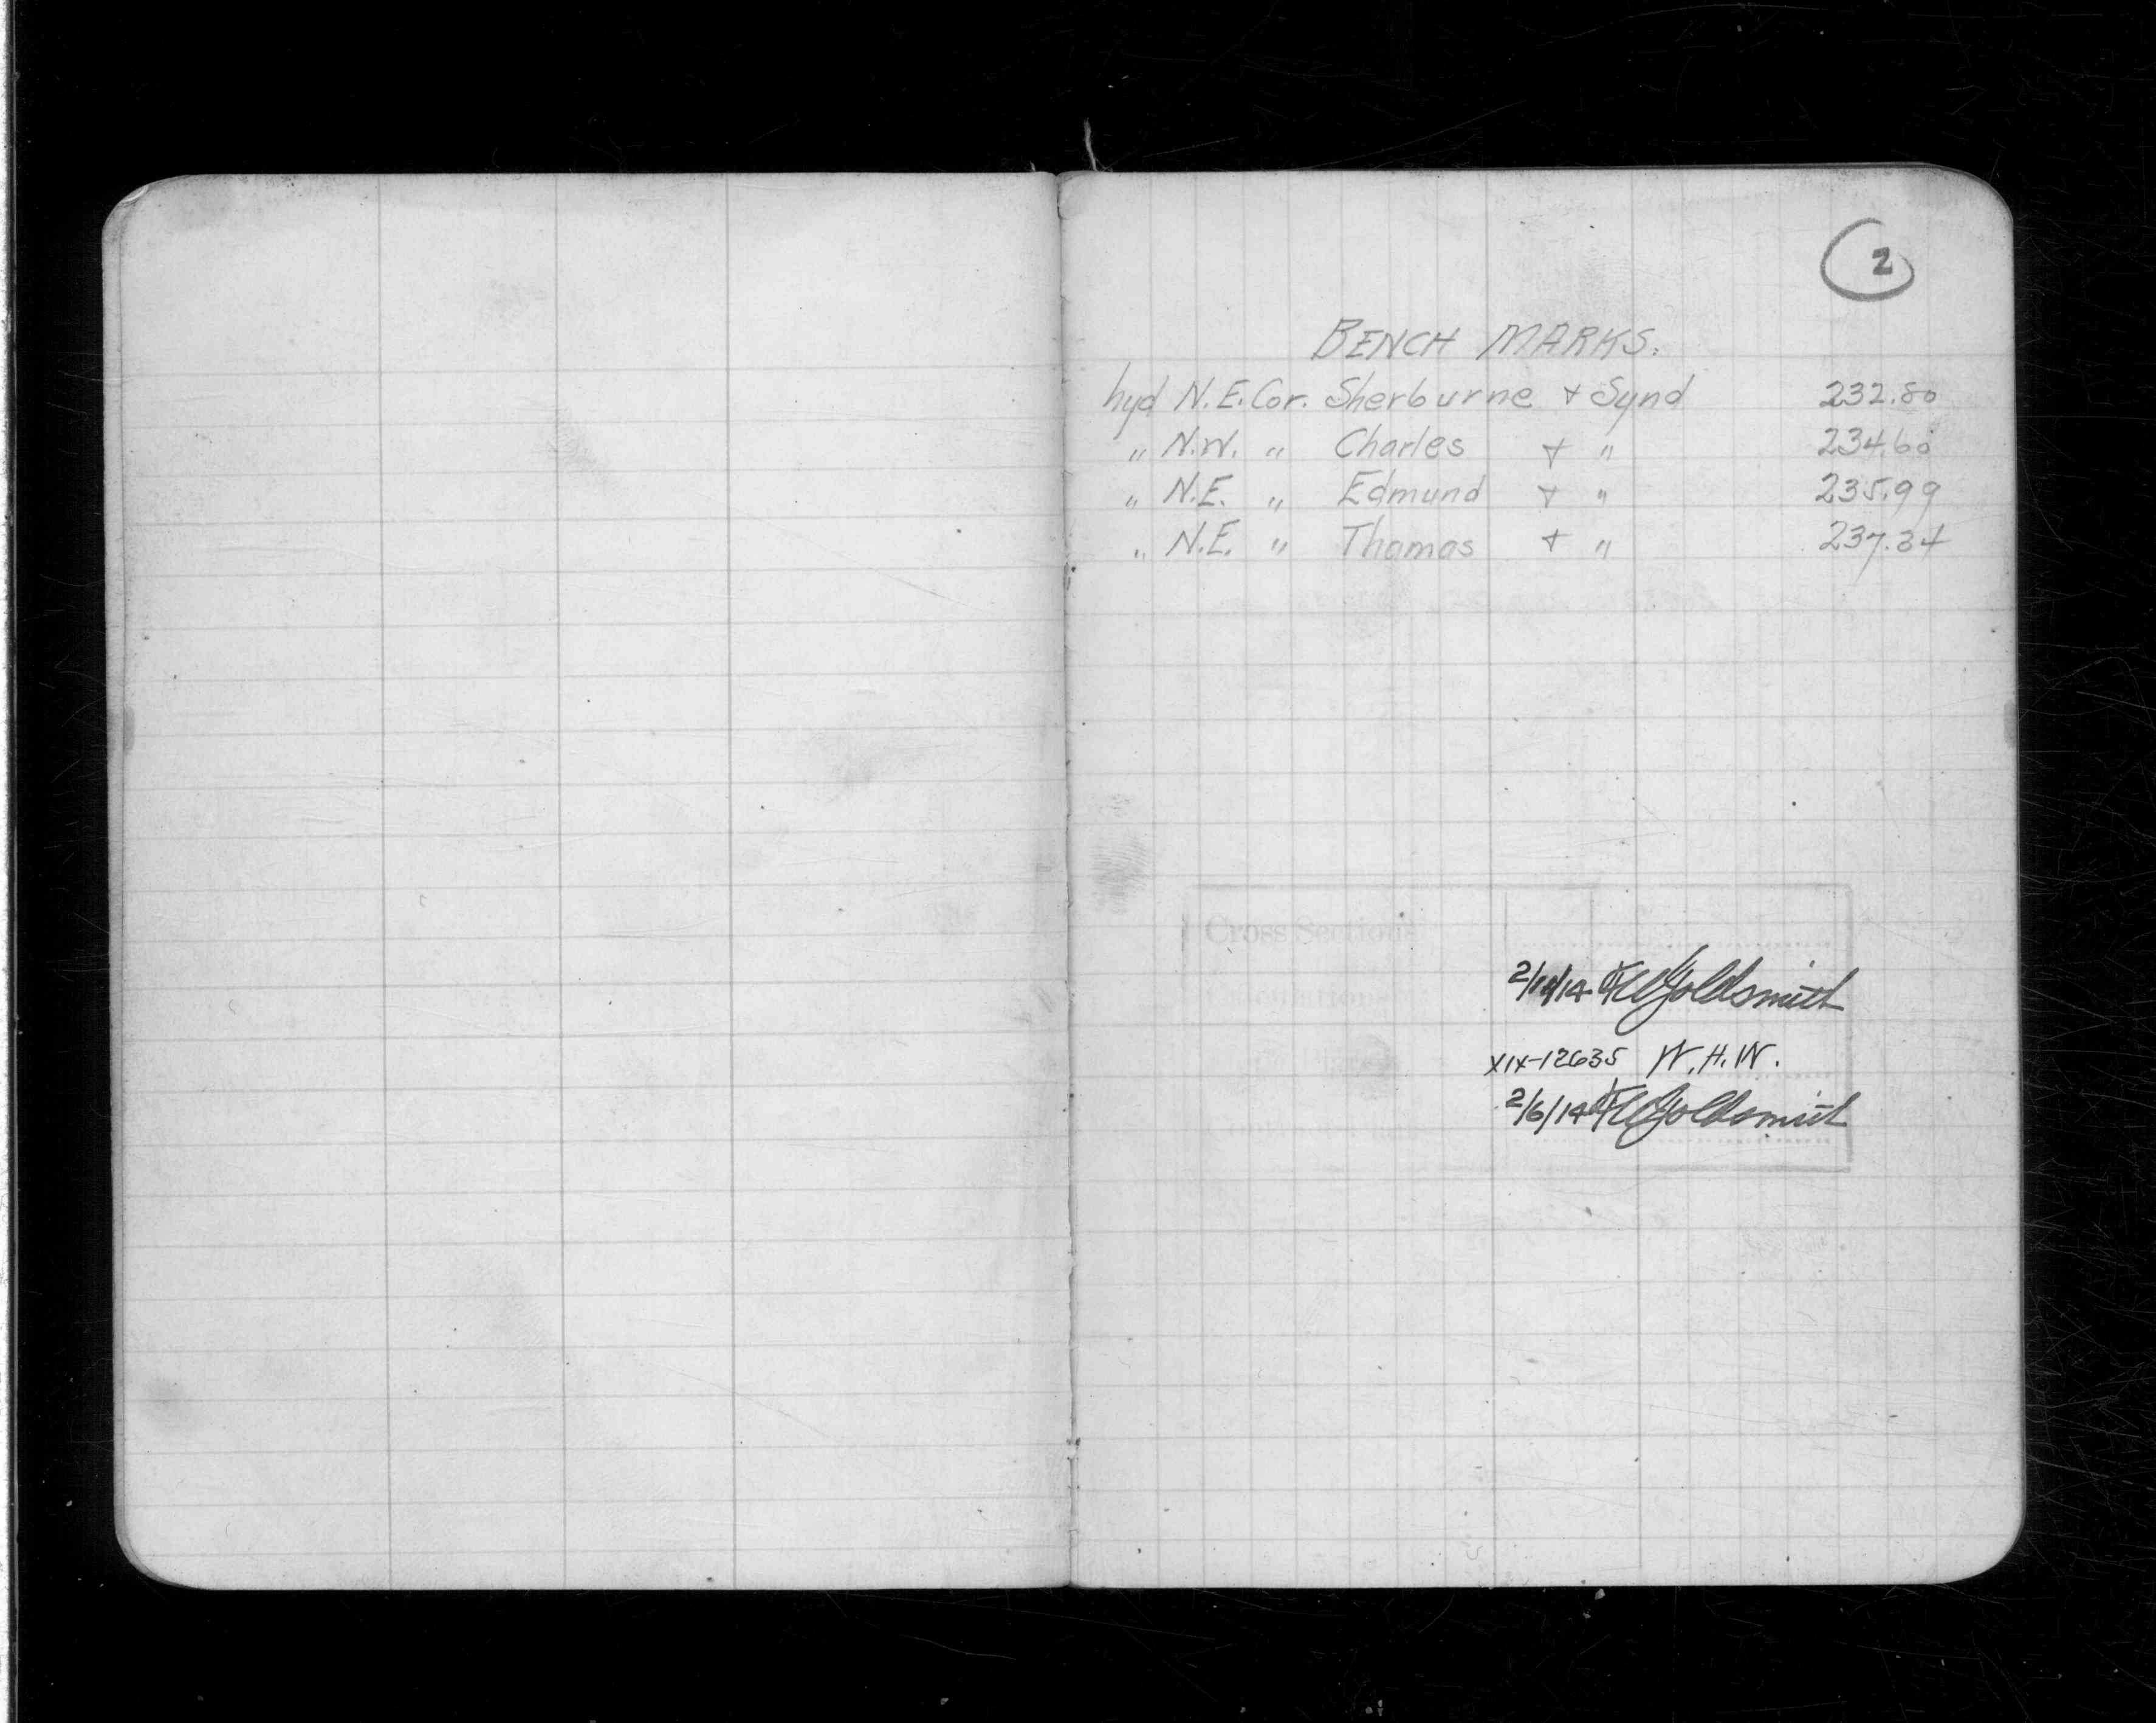 2
BENCH MARKS.
hyd N.E. Cor. Sherburne + Synd 232.80
" N.W. " Charles + " 234.60
" N.E. " Edmund + " 235.99
" N.E. " Thomas + " 237.34
Cross Sections
2/10/14 Goldsmith
XIX-12635 W.H.W.
2/6/14 Goldsmith